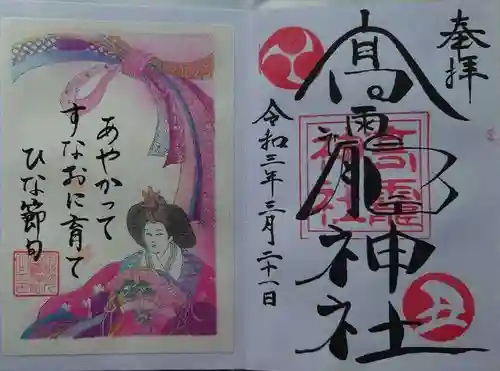 奉拝
高龗神社
令和三年三月二十一日
丑
高龗神社
あやかって
すなおに育て
ひな節句